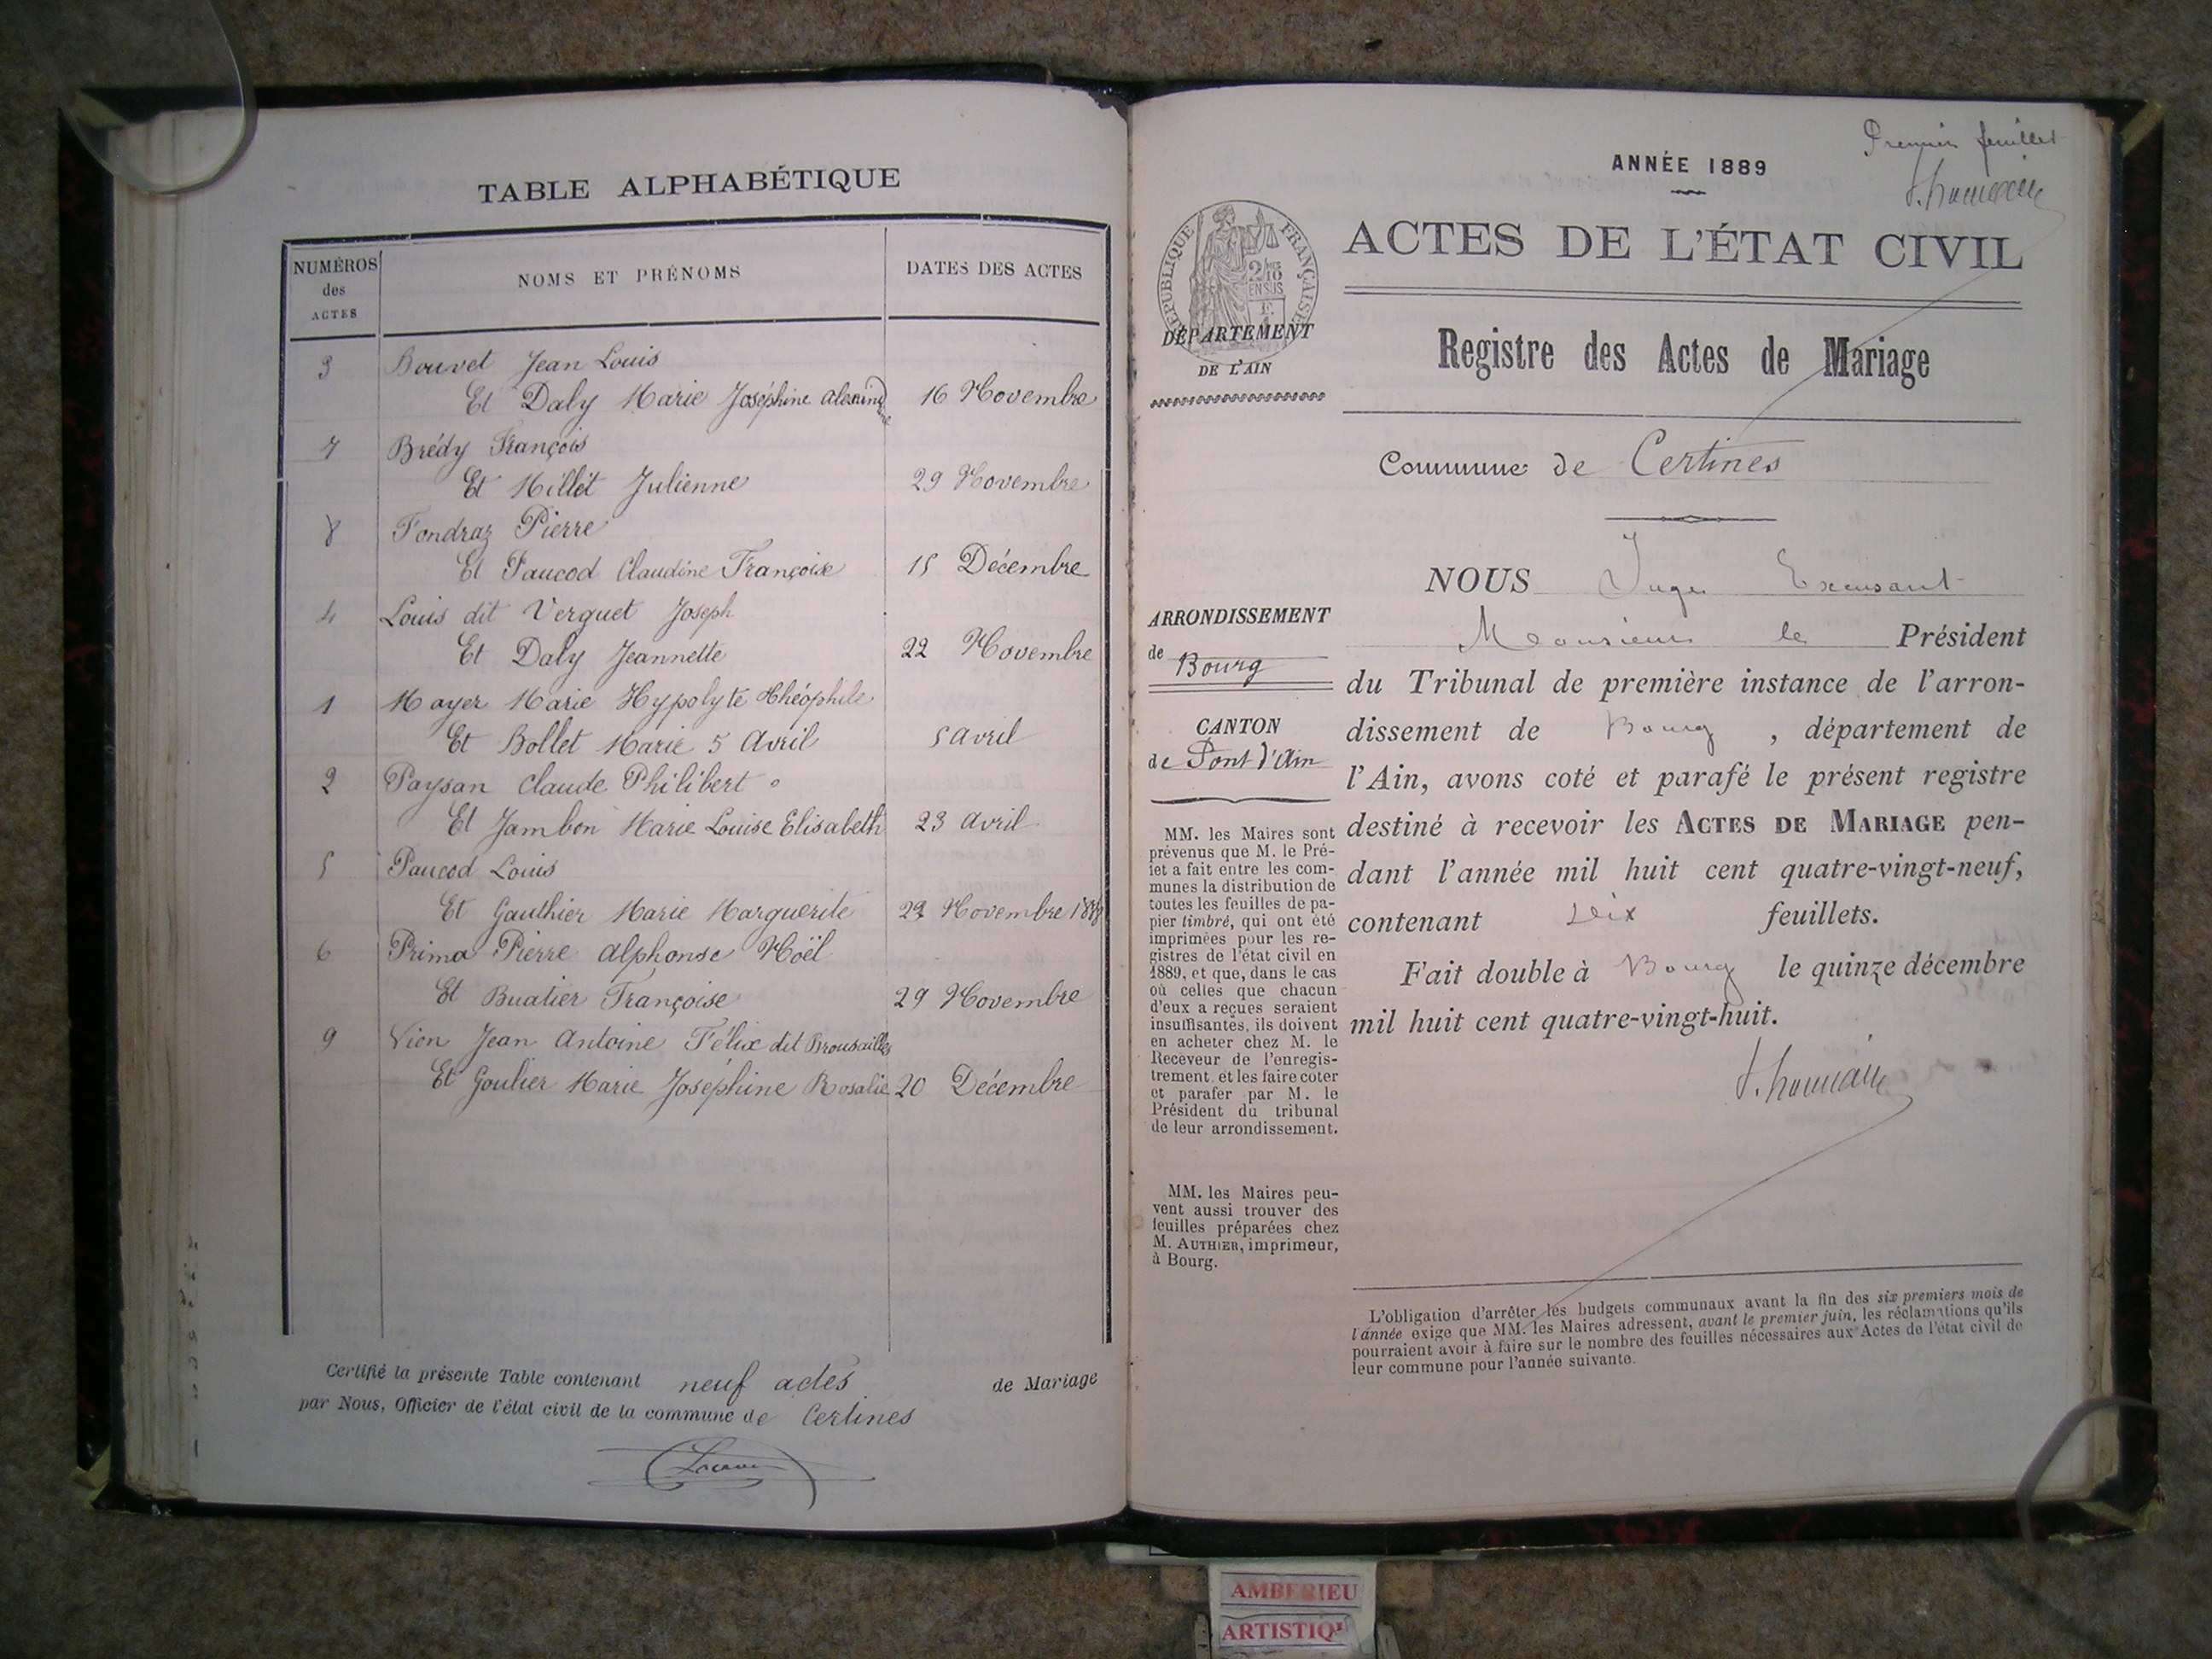 TABLE ALPHABÉTIQUE
NUMÉROS
des
ACTES
NOMS ET PRÉNOMS
DATES DES ACTES
3 Bouvet Jean Louis
Et Daly Marie Joséphine 16 Novembre
7 Brédy François
Et Millet Julienne 29 Novembre
8 Fondraz Pierre
Et Paucod Claudine Françoise 15 Décembre
4 Louis dit Verguet Joseph
Et Daly Jeannette 22 Novembre
1 Mayer Marie Hypolyte Théophile
Et Bollet Marie 5 Avril 5 avril
2 Paysan Claude Philibert
Et Jambon Marie Louise Elisabeth 23 avril
5 Paucod Louis
Et Gauthier Marie Marguerite Novembre
6 Prima Pierre Alphonse Noël
Et Buatier Françoise 29 Novembre
9 Vion Jean Antoine Félix dit Brousailles
Et Goulier Marie Joséphine Rosalie 20 Décembre
Certifié la présente Table contenant neuf actes de Mariage
par Nous, Officier de l'état civil de la commune de Certines
Premier feuillet
ANNÉE 1889
RÉPUBLIQUE FRANÇAISE
ACTES DE L'ÉTAT CIVIL
DÉPARTEMENT
DE L'AIN
Registre des Actes de Mariage
Commune de Certines
ARRONDISSEMENT
de Bourg
CANTON
de Pont d'Ain
MM. les Maires sont
prévenus que M. le Pré-
fet a fait entre les com-
munes la distribution de
toutes les feuilles de pa-
pier timbré, qui ont été
imprimées pour les re-
gistres de l'état civil en
1889, et que, dans le cas
où celles que chacun
d'eux a reçues seraient
insuffisantes, ils doivent
en acheter chez M. le
Receveur de l'enregis-
trement et les faire coter
et parafer par M. le
Président du tribunal
de leur arrondissement.
MM. les Maires peu-
vent aussi trouver des
feuilles préparées chez
M. AUTHIER, imprimeur,
à Bourg.
NOUS Juge Excusant
Monsieur le Président
du Tribunal de première instance de l'arron-
dissement de Bourg, département de
l'Ain, avons coté et parafé le présent registre
destiné à recevoir les ACTES DE MARIAGE pen-
dant l'année mil huit cent quatre-vingt-neuf,
contenant feuillets.
Fait double à Bourg le quinze décembre
mil huit cent quatre-vingt-huit.
L'obligation d'arrêter les budgets communaux avant la fin des six premiers mois de
l'année exige que MM. les Maires adressent, avant le premier juin, les réclamations qu'ils
pourraient avoir à faire sur le nombre des feuilles nécessaires aux Actes de l'état civil de
leur commune pour l'année suivante.
AMBERIEU
ARTISTIQ